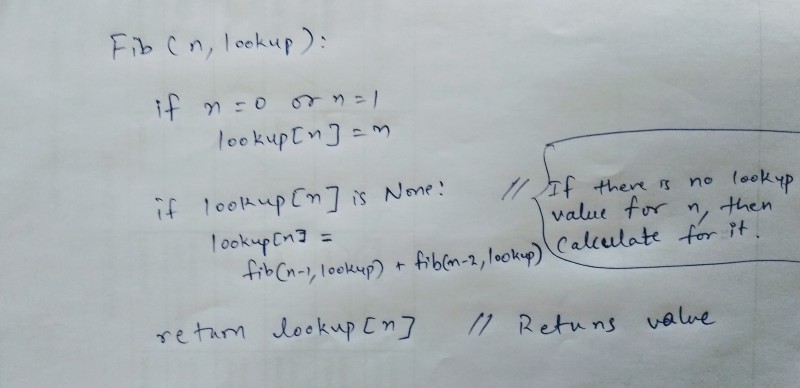 Fib(n, lookup):
if n=0 or n=1
lookup[n] = n
if lookup[n] is None: // If there is no lookup
value for n, then
lookup[n] =
calculate for it.
fib(n-1, lookup) + fib(n-2, lookup)
return lookup[n] // Returns value